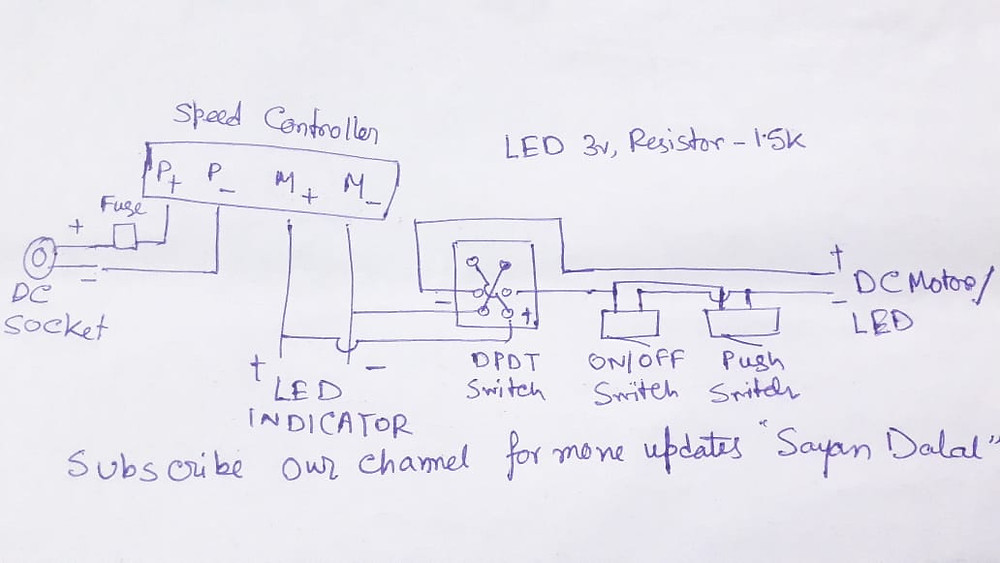 Speed Controller
LED 3v, Resistor - 1.5K
P+ P- M+ M-
Fuse
+
-
DC
Socket
+ -
LED
INDICATOR
- +
DPDT
Switch
ON/OFF
Switch
Push
Switch
+
-
DC Motor/
LED
Subscribe our channel for more updates "Sayan Dalal"